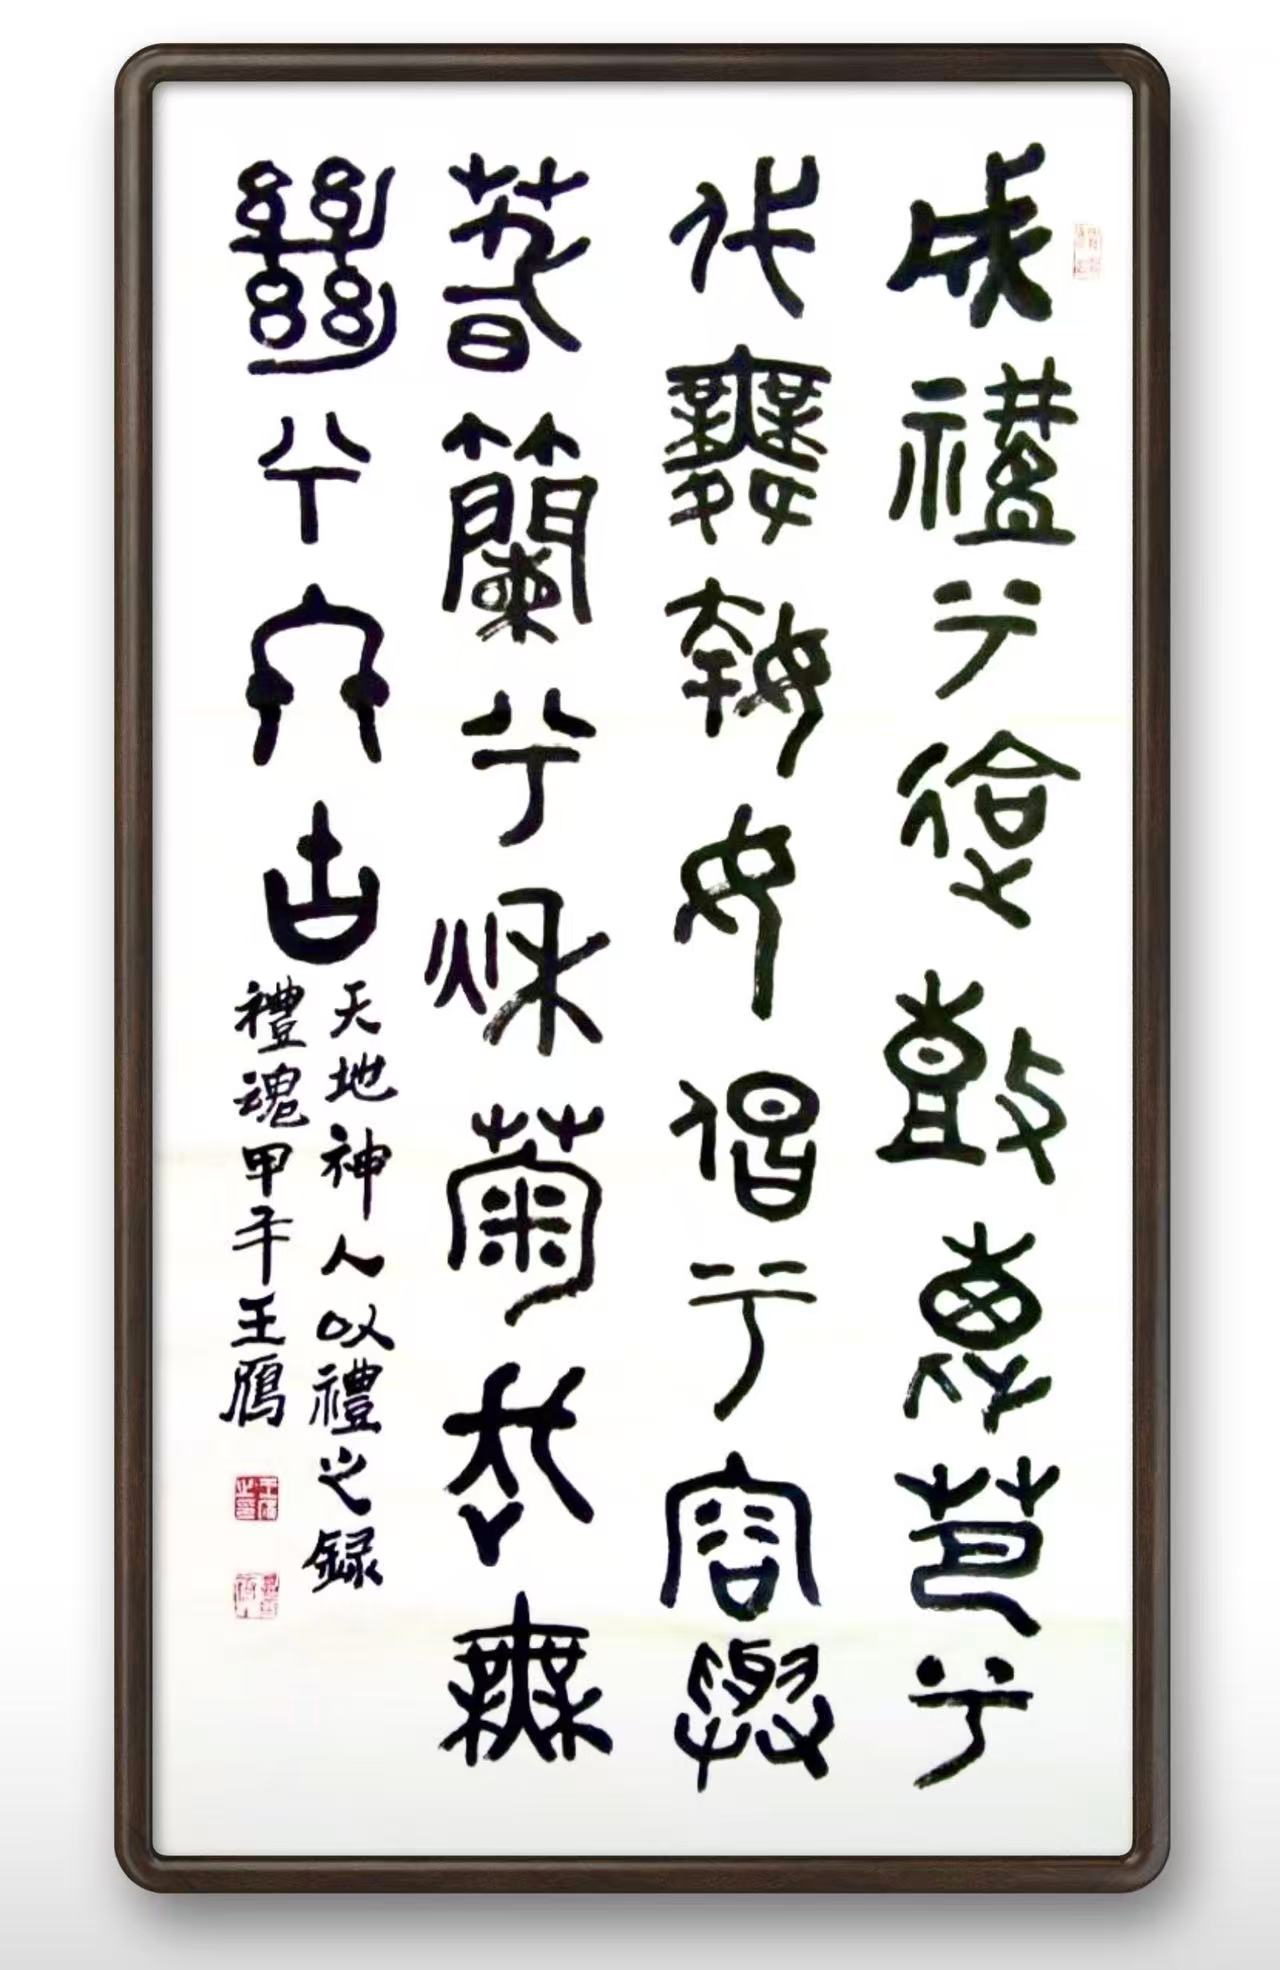 成禮兮會鼓傳芭兮
代舞姱女倡兮容與
春蘭兮秋菊長無
絕兮終古
天地神人以禮之録
禮魂甲午王鴈